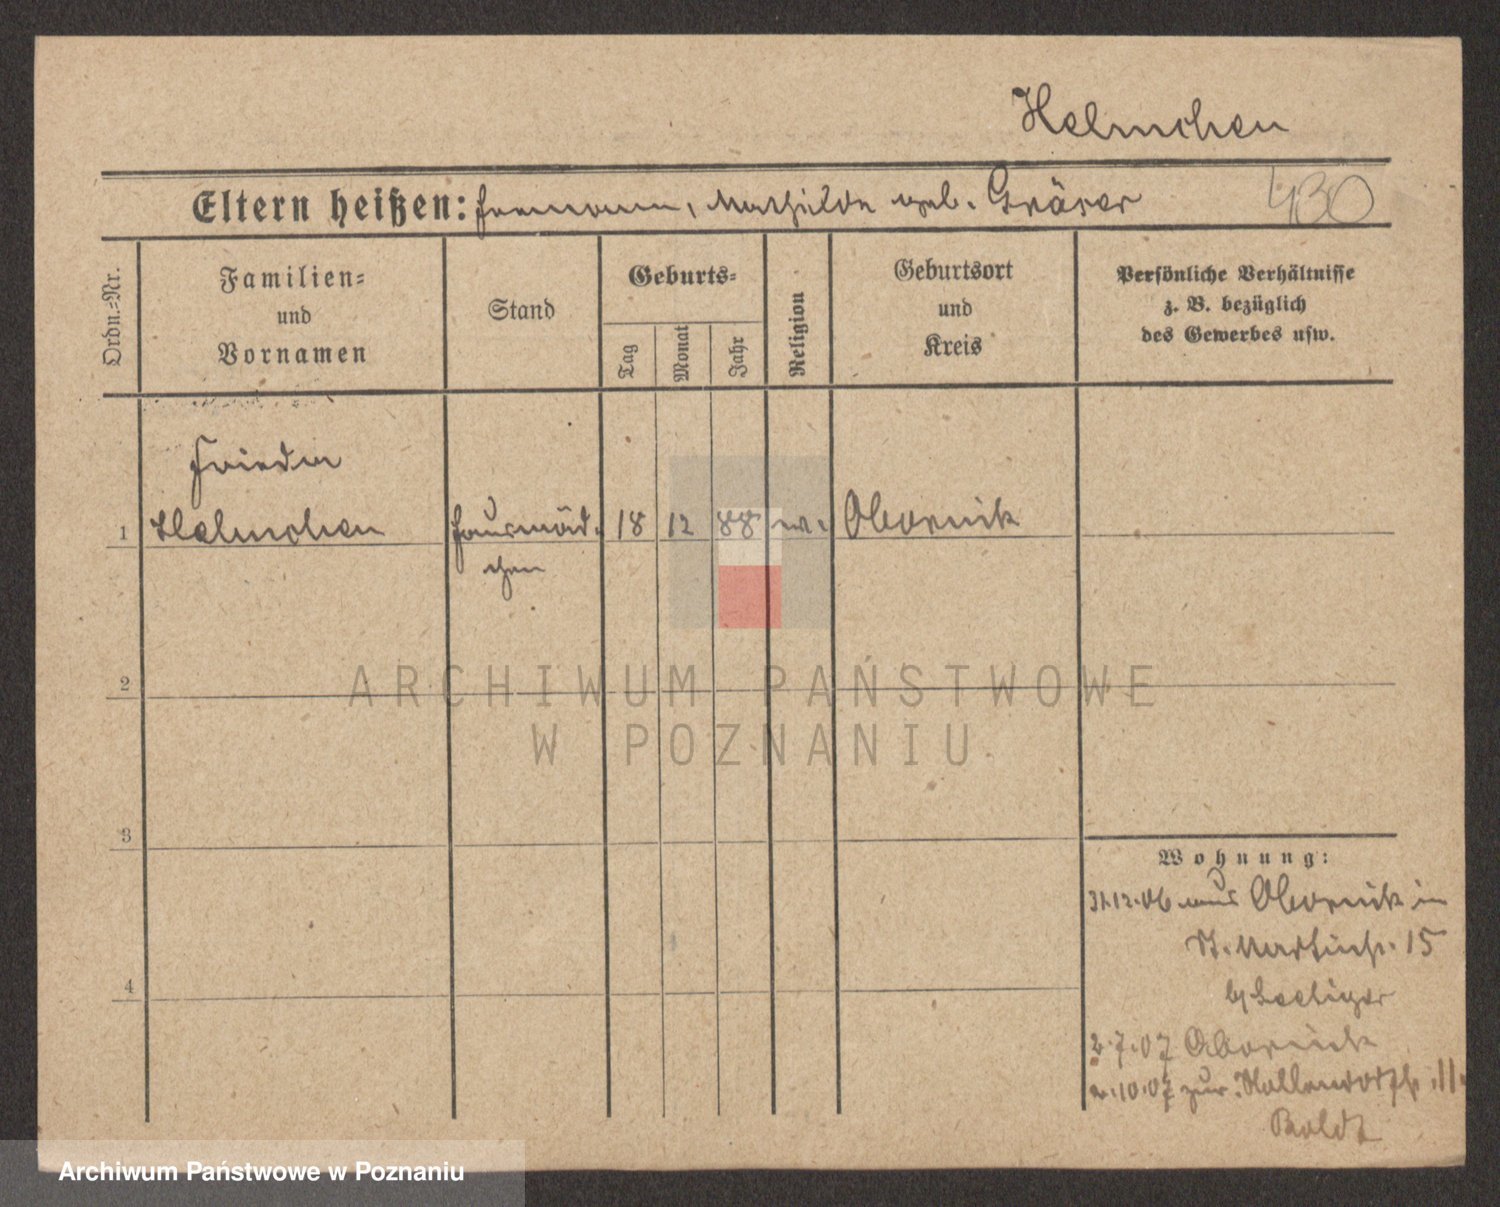 Helmchen
Eltern heißen: Hermann, Mathilde geb. Gräser
430
Ordn.-Nr.
Familien-
und
Vornamen
Stand
Geburts-
Tag
Monat
Jahr
Religion
Geburtsort
und
Kreis
Persönliche Verhältnisse
z. B. bezüglich
des Gewerbes usw.
Frieda
1 Helmchen Hausmäd- 18 12 88 ev. Obornik
chen
2
3
4
Wohnung:
31.12.06 aus Obornik in
St. Martinstr. 15
b/ Seeliger
2.7.07 Obornik
2.10.07 zur.
Boldt
ARCHIWUM PAŃSTWOWE
W POZNANIU
Archiwum Państwowe w Poznaniu